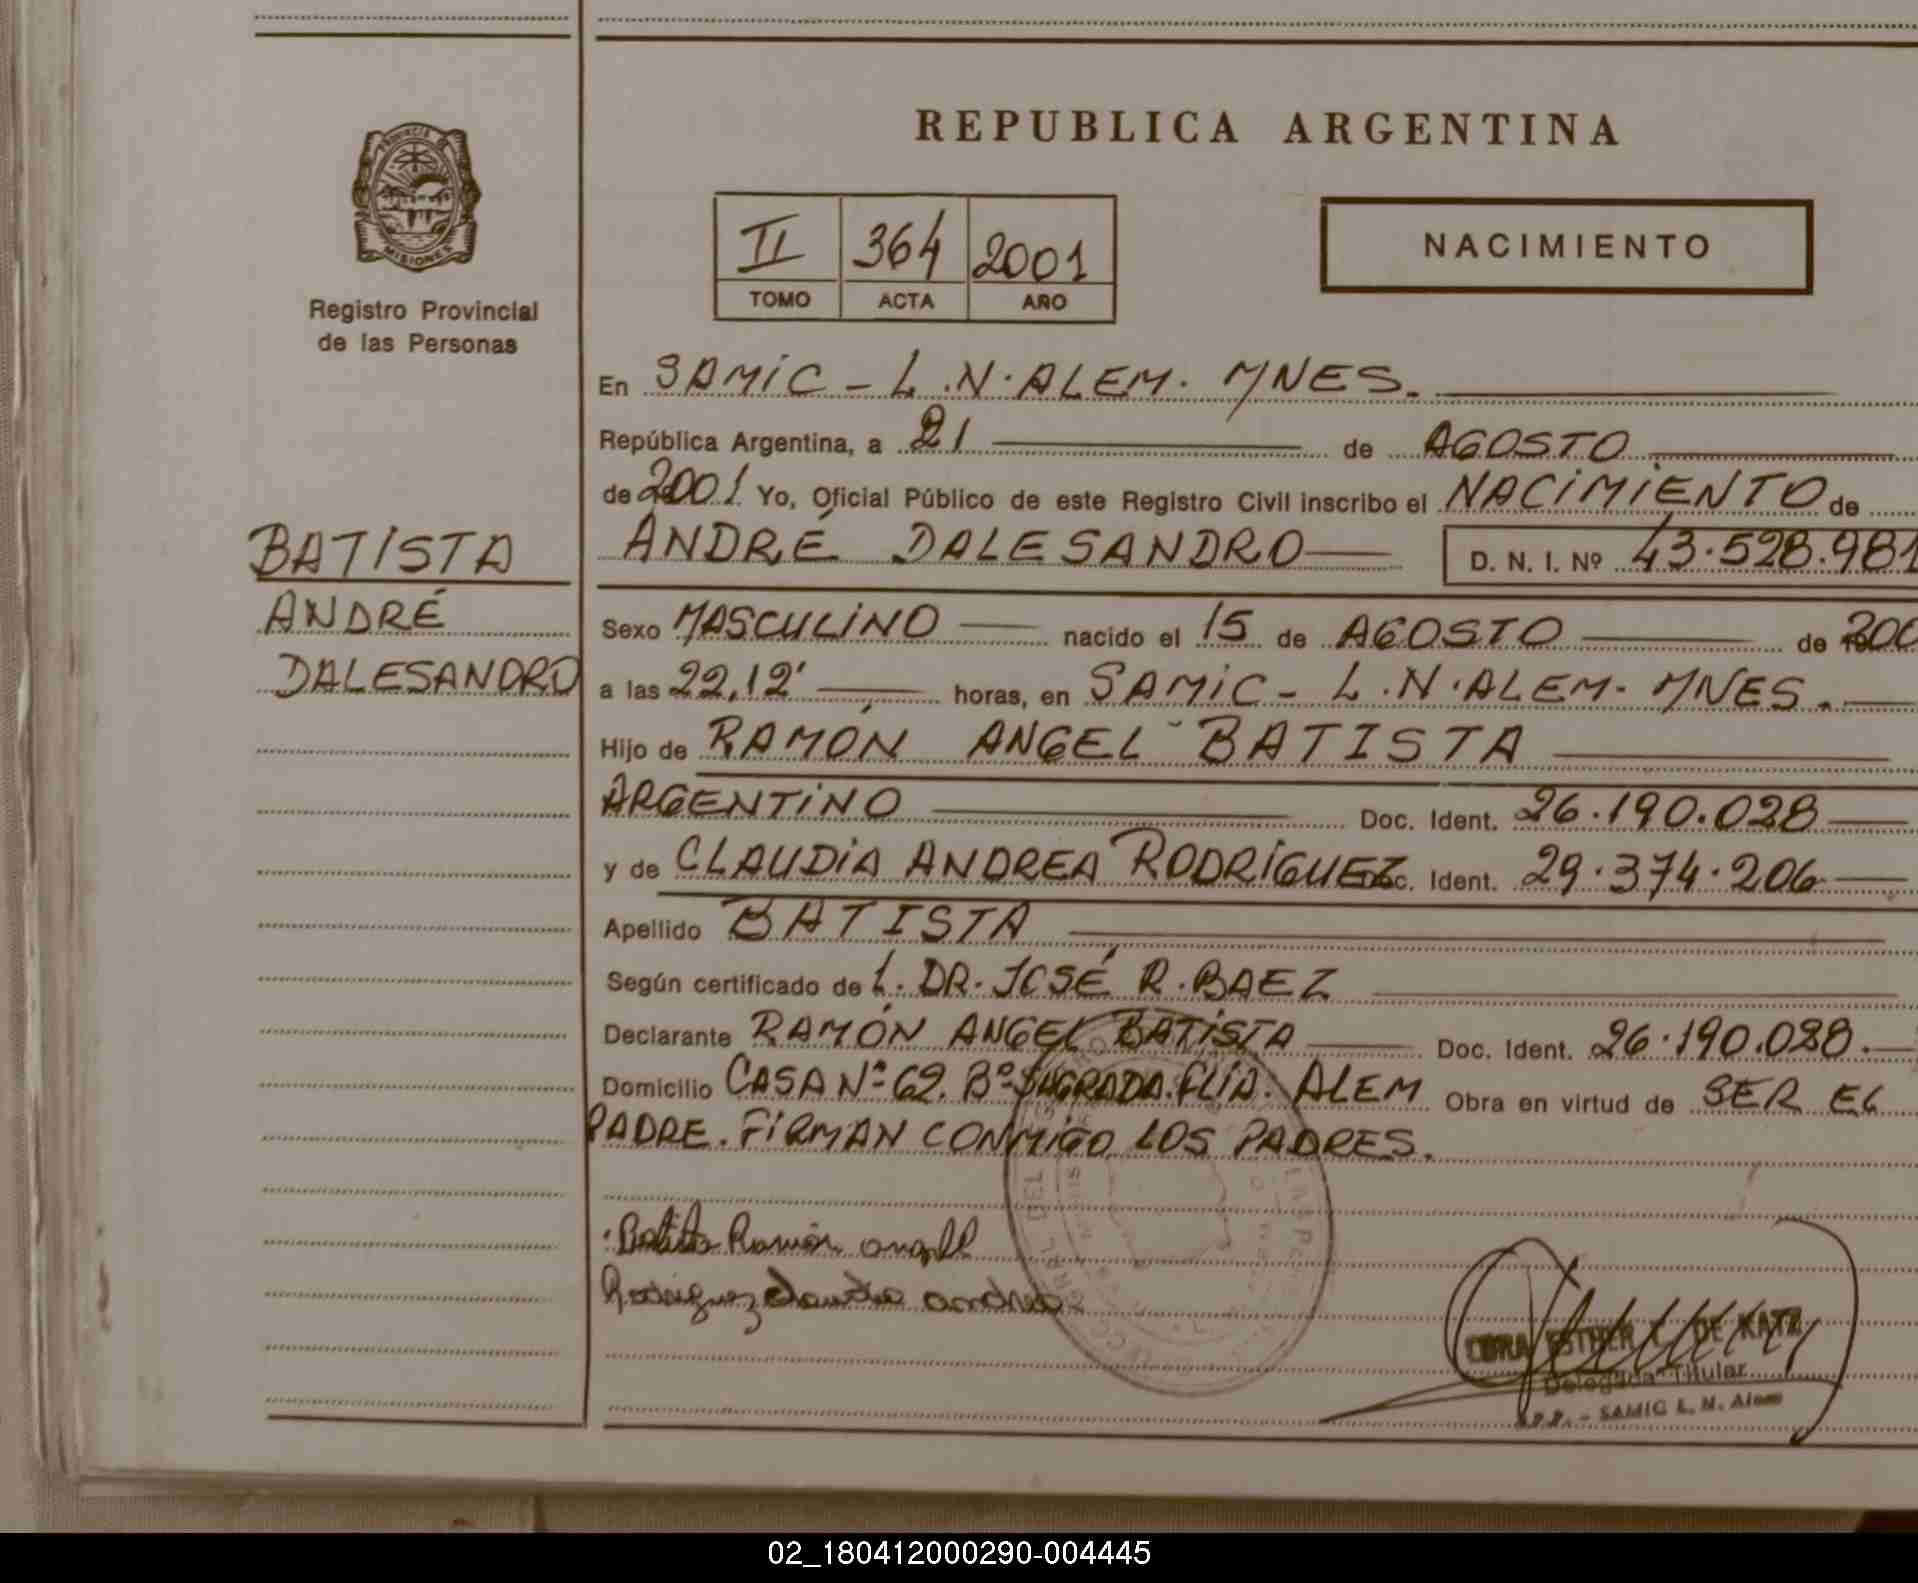 REPUBLICA ARGENTINA
PROVINCIA
MISIONES
Registro Provincial
de las Personas
II 364 2001
TOMO ACTA AÑO
NACIMIENTO
En SAMIC - L.N. ALEM. MNES.
República Argentina, a 21 de AGOSTO
de 2001 Yo, Oficial Público de este Registro Civil inscribo el NACIMIENTO de
ANDRÉ DALESANDRO D. N. I. Nº 43.528.981
BATISTA
ANDRÉ
DALESANDRO
Sexo MASCULINO nacido el 15 de AGOSTO de 200
a las 22,12' horas, en SAMIC - L.N. ALEM - MNES.
Hijo de RAMÓN ANGEL BATISTA
ARGENTINO Doc. Ident. 26.190.028
y de CLAUDIA ANDREA RODRÍGUEZ Doc. Ident. 29.374.206
Apellido BATISTA
Según certificado de L. DR. JOSÉ R. BAEZ
Declarante RAMÓN ANGEL BATISTA Doc. Ident. 26.190.028.
Domicilio CASA Nº 62. Bº SAGRADA FLIA. ALEM Obra en virtud de SER EL
PADRE. FIRMAN CONMIGO LOS PADRES.
Batista Ramón angel
Rodriguez Claudia andrea
ESTHER L. DE KATZ
Delegada Titular
SAMIC L. N. Alem
02_180412000290-004445